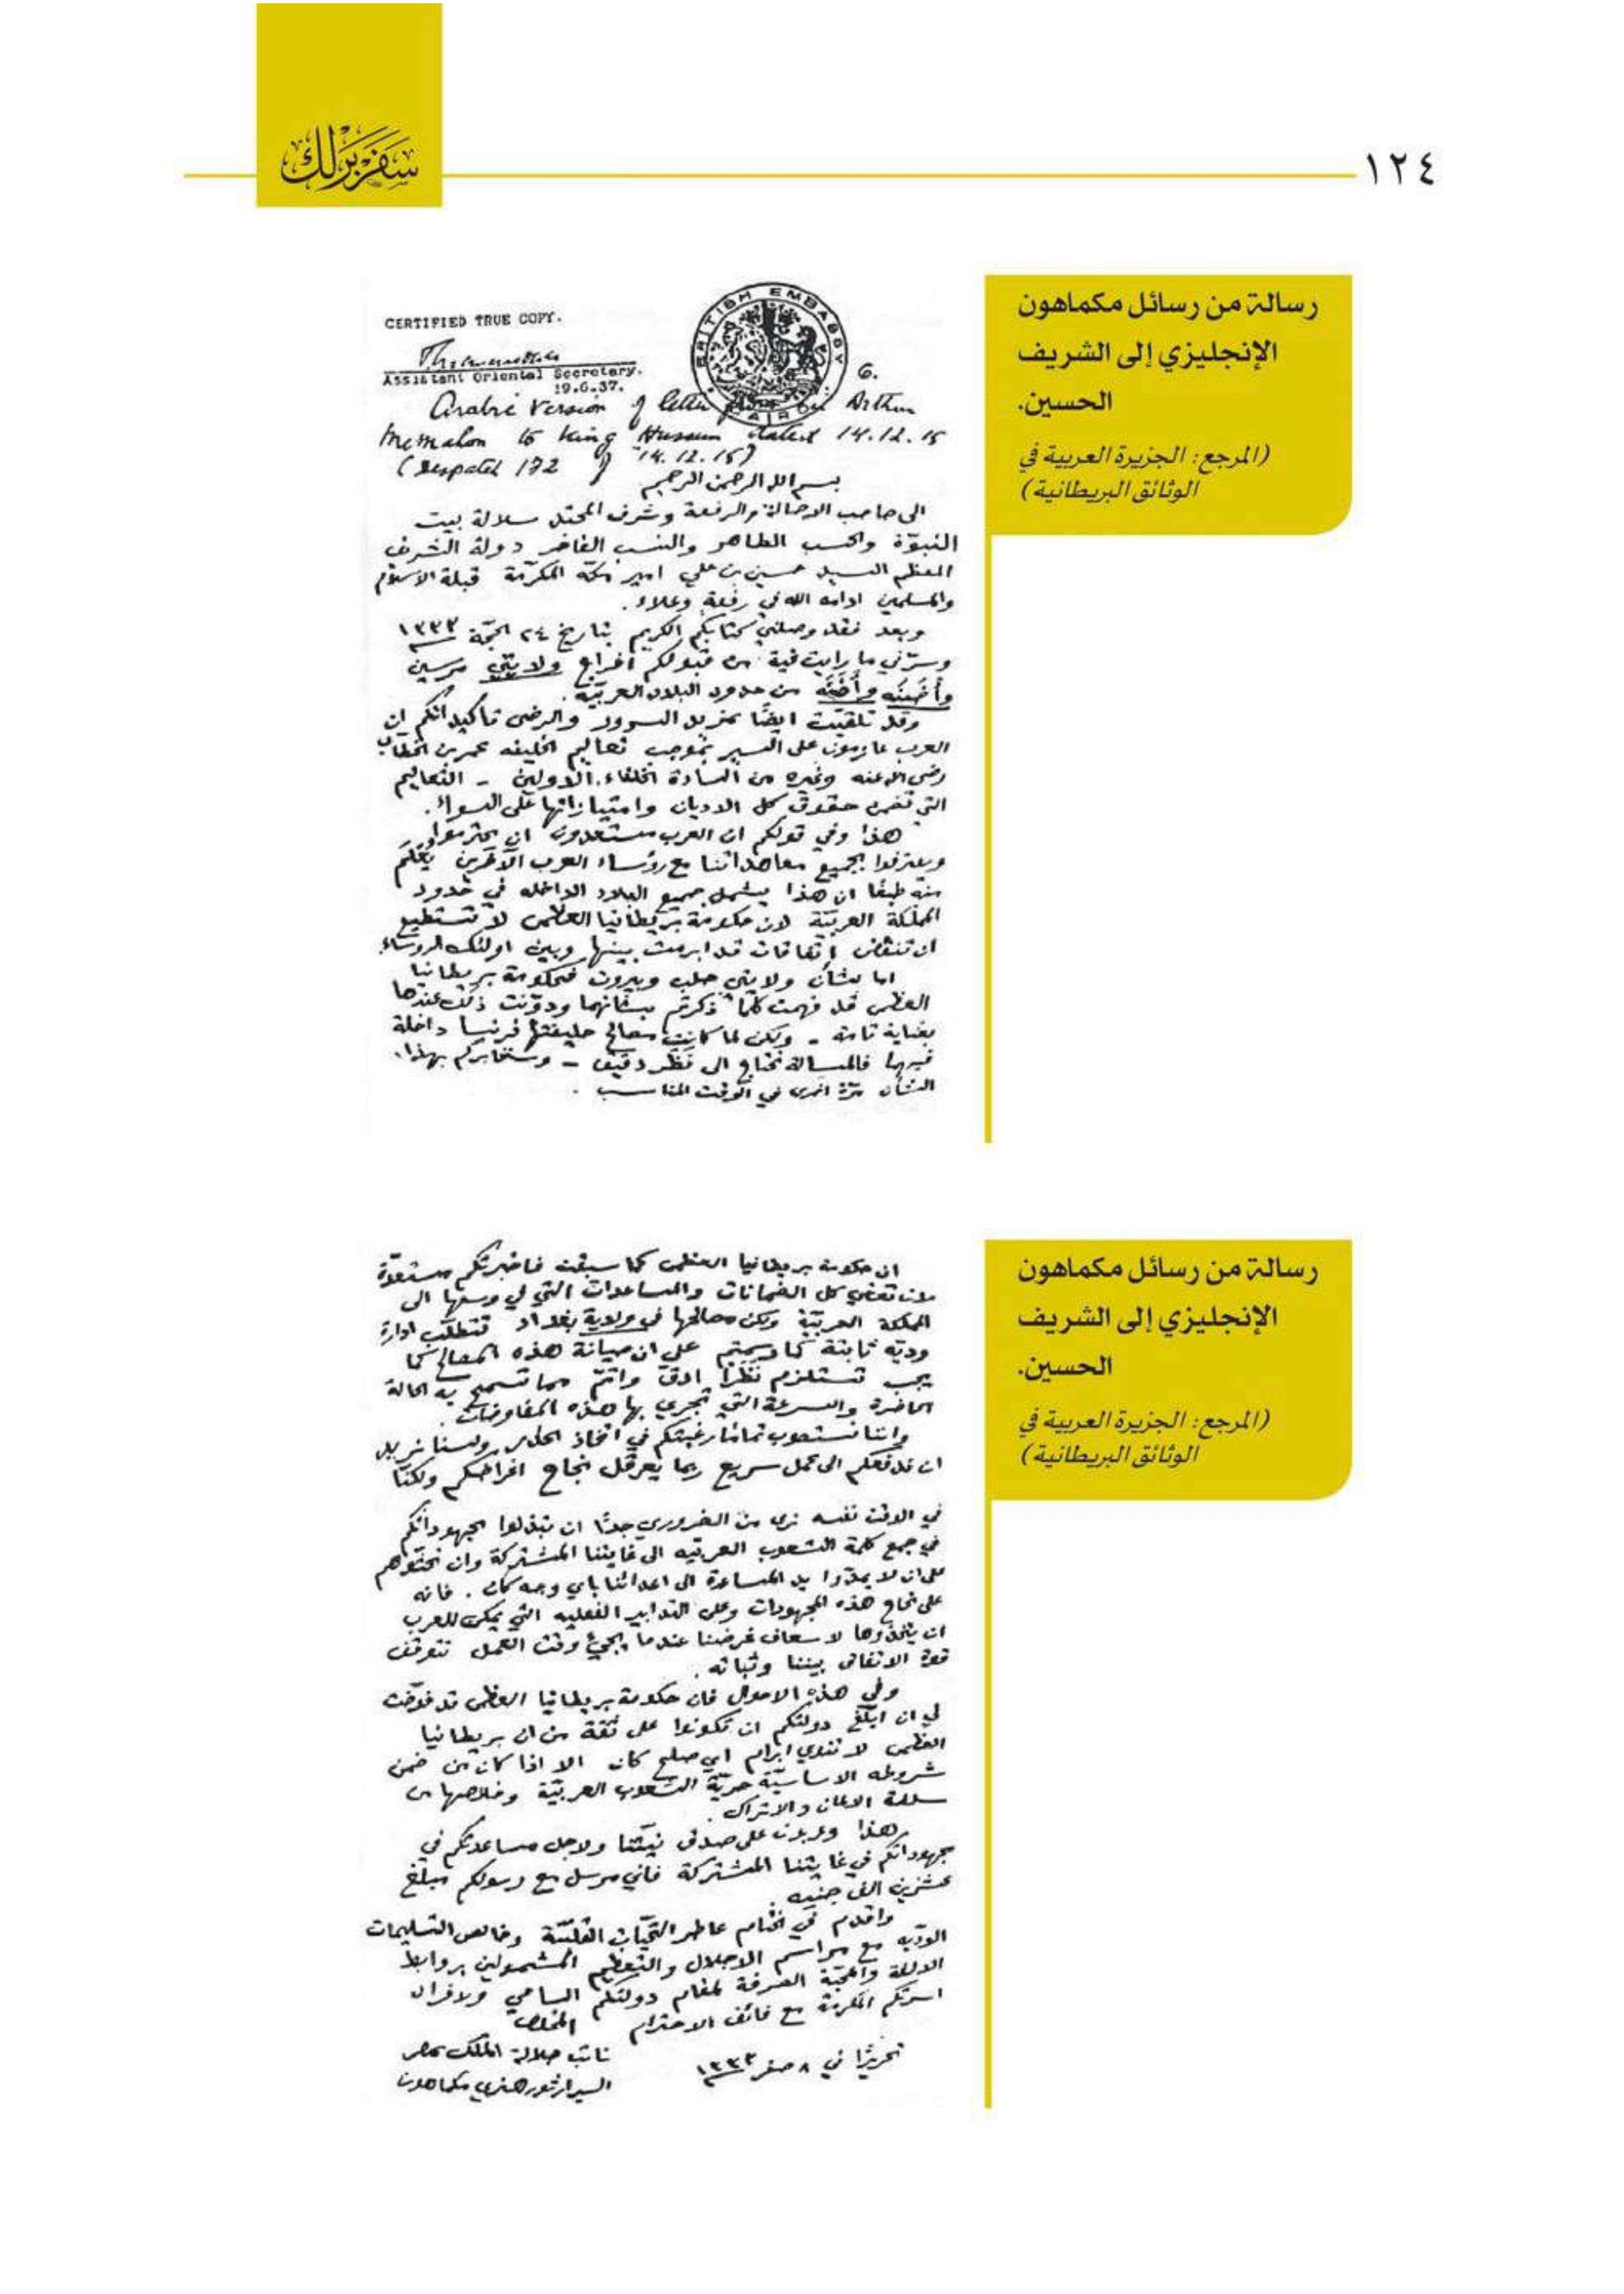 سفربرلك
١٢٤
رسالة من رسائل مكماهون
الإنجليزي إلى الشريف
الحسين.
(المرجع: الجزيرة العربية في
الوثائق البريطانية)
CERTIFIED TRUE COPY.
Assistant Oriental Secretary.
19.6.37.
BRITISH EMBASSY
CAIRO
6.
Arabic Version of letter from Sir Arthur
McMahon to King Hussein dated 14.12.15
(Despatch 172 of 14.12.15)
بسم الله الرحمن الرحيم
الى صاحب الاصالة والرفعة وشرف المحتد سلالة بيت
النبوّة والحسب الطاهر والنسب الفاخر دولة الشريف
المعظم السيد حسين بن علي امير مكة المكرّمة قبلة الاسلام
والمسلمين ادامه الله في رفعة وعلاء.
وبعد فقد وصلني كتابكم الكريم بتاريخ ٢٤ الحجّة ١٣٣٣
وسرّني ما رايت فيه من قبولكم اخراج ولايتي مرسين
وأضنه من حدود البلاد العربيّة.
وقد تلقيت ايضًا بمزيد السرور والرضى تأكيداتكم ان
العرب عازمون على السير بموجب تعاليم الخليفه عمر بن الخطاب
رضى الله عنه وغيره من السادة الخلفاء الاولين - التعاليم
التي تضمن حقوق كل الاديان وامتيازاتها على السواء.
هذا وفي قولكم ان العرب مستعدون ان يحترموا
ويعترفوا بجميع معاهداتنا مع رؤساء العرب الآخرين يُعلم
منه طبعًا ان هذا يشمل جميع البلاد الداخله في حدود
المملكة العربيّة لان حكومة بريطانيا العظمى لا تستطيع
ان تنقض اتفاقات قد ابرمت بينها وبين اولئك الرؤساء
اما بشأن ولايتي حلب وبيروت فحكومة بريطانيا
العظمى قد فهمت كلما ذكرتم بشأنهما ودوّنت ذلك عندها
بعناية تامة - ولكن لما كانت مصالح حليفتها فرنسا داخلة
فيهما فالمسالة تحتاج الى نظر دقيق - وسنخابركم بهذا
الشأن مرّة اخرى في الوقت المناسب.
رسالة من رسائل مكماهون
الإنجليزي إلى الشريف
الحسين.
(المرجع: الجزيرة العربية في
الوثائق البريطانية)
ان حكومة بريطانيا العظمى كما سبقت فاخبرتكم مستعدّة
لان تعطي كل الضمانات والمساعدات التي في وسعها الى
المملكة العربيّة ولكن مصالحها في ولاية بغداد تتطلّب ادارة
وديّه ثابتة كما رسمتم على ان صيانة هذه المصالح كما
يجب تستلزم نظرًا ادقّ واتمّ مما تسمح به الحالة
الحاضرة والسرعة التي تجري بها هذه المفاوضات.
واننا نستصوب تمامًا رغبتكم في اتخاذ الحذر ولسنا نريد
ان ندفعكم الى عمل سريع ربما يعرقل نجاح اغراضكم ولكنّا
في الوقت نفسه نرى من الضروري جدًّا ان تبذلوا مجهوداتكم
في جمع كلمة الشعوب العربيه الى غايتنا المشتركة وان تحثّوهم
على ان لا يمدّوا يد المساعدة الى اعدائنا باي وجه كان. فانه
على نجاح هذه المجهودات وعلى التدابير الفعليه التي يمكن للعرب
ان يتخذوها لاسعاف غرضنا عندما يجيء وقت العمل تتوقف
قوة الاتفاق بيننا وثباته.
وفي هذه الاحوال فان حكومة بريطانيا العظمى قد فوّضت
لي ان ابلّغ دولتكم ان تكونوا على ثقة من ان بريطانيا
العظمى لا تنوي ابرام اي صلح كان الا اذا كان من ضمن
شروطه الاساسيّة حريّة الشعوب العربيّة وخلاصها من
سلطة الالمان والاتراك.
هذا وعربون على صدق نيّتنا ولاجل مساعدتكم في
مجهوداتكم في غايتنا المشتركة فاني مرسل مع رسولكم مبلغ
عشرين الف جنيه.
واقدم في الختام عاطر التحيّات القلبيّة وخالص التسليمات
الوديّه مع مراسم الاجلال والتعظيم المشمولين بروابط
الالفة والمحبّة الصرفة لمقام دولتكم السامي ولافراد
اسرتكم المكرمة مع فائق الاحترام المخلص
تحريرًا في ٨ صفر ١٣٣٣
نائب جلالة الملك بمصر
السير ارثور هنري مكماهون